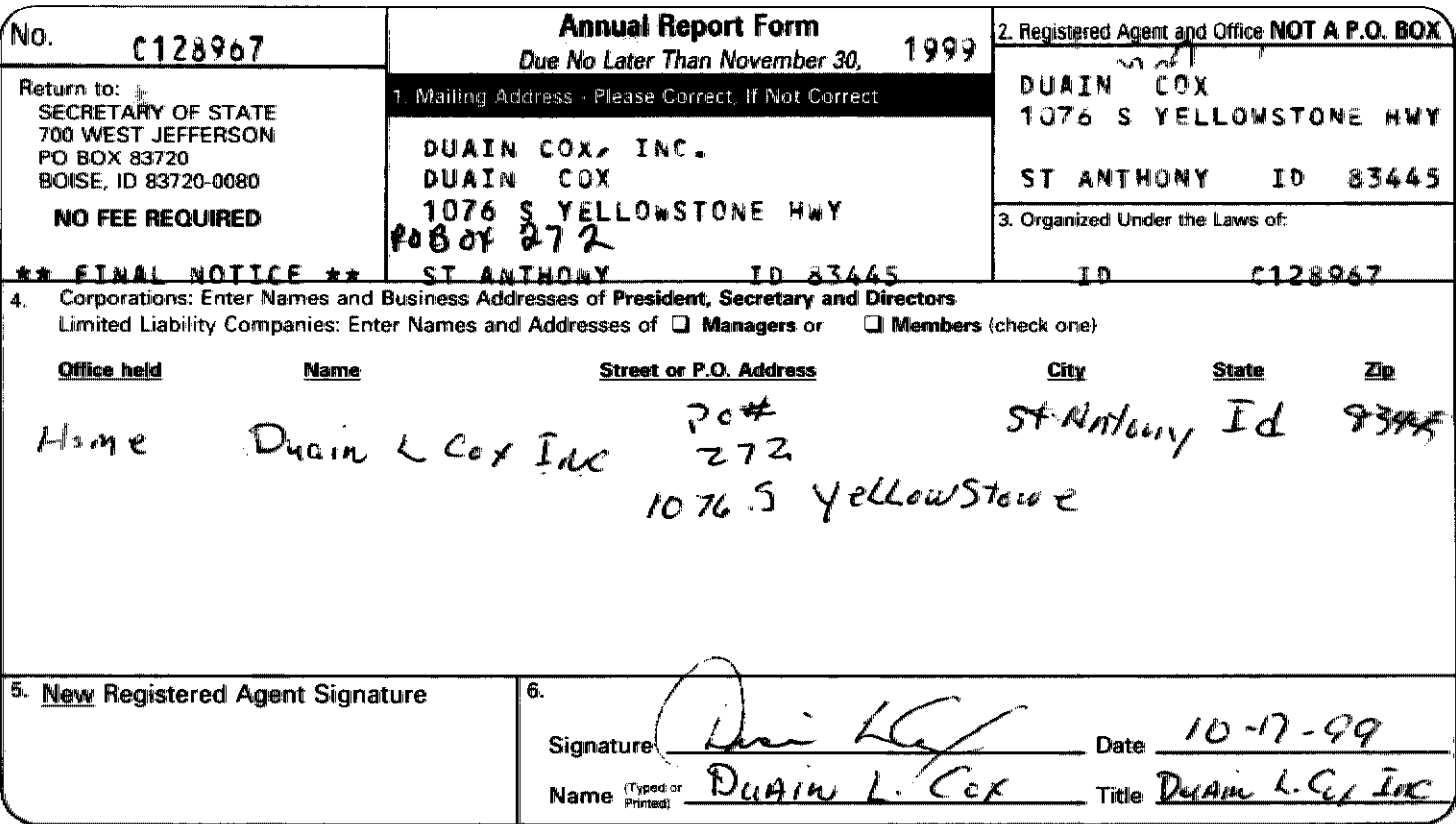 No. C128967
Return to:
SECRETARY OF STATE
700 WEST JEFFERSON
PO BOX 83720
BOISE, ID 83720-0080
NO FEE REQUIRED
** FINAL NOTICE **
Annual Report Form 1999
Due No Later Than November 30,
1. Mailing Address - Please Correct, If Not Correct
DUAIN COX, INC.
DUAIN COX
1076 S YELLOWSTONE HWY
POBOX 272
ST ANTHONY ID 83445
2. Registered Agent and Office NOT A P.O. BOX
DUAIN COX
1076 S YELLOWSTONE HWY
ST ANTHONY ID 83445
3. Organized Under the Laws of:
ID C128967
4. Corporations: Enter Names and Business Addresses of President, Secretary and Directors
Limited Liability Companies: Enter Names and Addresses of ❑ Managers or ❑ Members (check one)
Office held Name Street or P.O. Address City State Zip
Home Duain L Cox Inc PO# Id 83445
272
1076 S YellowStone
5. New Registered Agent Signature
6.
Signature Duain L Cox Date 10-17-99
Name (Typed or Printed) Duain L. Cox Title Duain L. Cox Inc